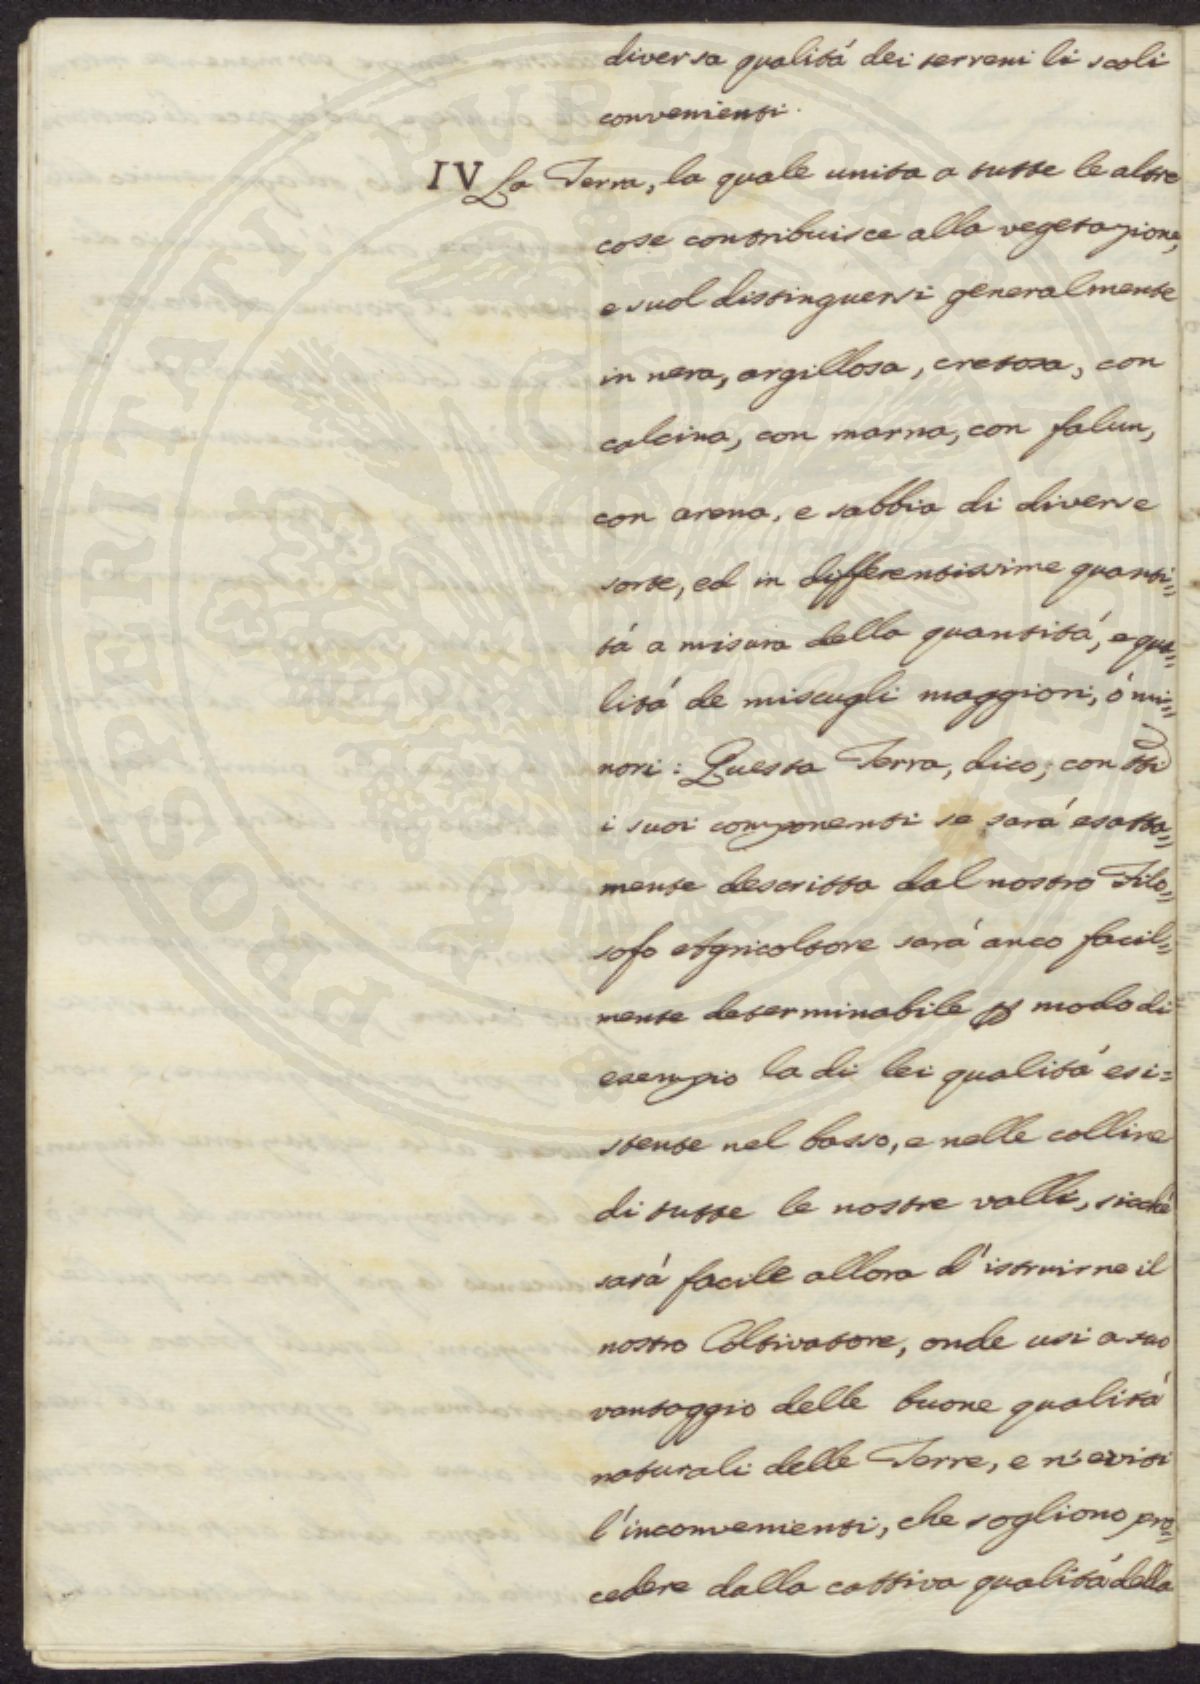 diversa qualitá dei terreni li scoli
convenienti.
IV La Terra, la quale unita a tutte le altre
cose contribuisce alla vegetazione,
e suol distinguersi generalmente
in nera, argillosa, cretosa, con
calcina, con marna, con falun,
con arena, e sabbia di diverse
sorte, ed in differentissime quanti=
tá a misura della quantitá, e qua=
litá de miscugli maggiori, ó mi=
nori: Questa Terra, dico, con tti
i suoi componenti se sará esatta=
mente descritta dal nostro Filo=
sofo Agricoltore sará anco facil=
mente determinabile ꝑ modo di
esempio la di lei qualitá esi=
stente nel basso, e nelle colline
di tutte le nostre valli, sicché
sará facile allora d'istruirne il
nostro Coltivatore, onde usi a suo
vantaggio delle buone qualitá
naturali delle Terre, e n'eviti
l'inconvenienti, che sogliono pro=
cedere dalla cattiva qualitá della
PROSPERITATI PUBLICAE AUGENDAE